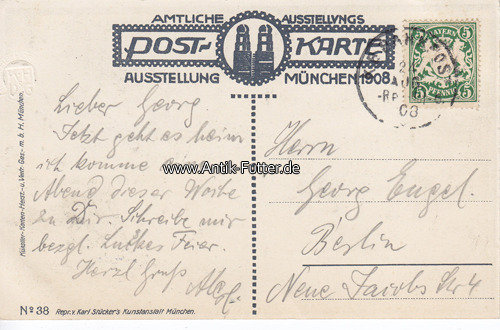 AMTLICHE AUSSTELLUNGS
POST- KARTE
AUSSTELLUNG MÜNCHEN 1908
BAYERN
5 5
5 PFENNIG 5
AUG
08
Lieber Georg
Jetzt geht es heim
ich komme
Abend dieser Woche
zu Dir. Schreibe mir
bezgl. Feier.
Herzl Gruß
Herrn
Georg Engel.
Berlin
Neue Jacobs Str 4
www.Antik-Fuetter.de
Künstler-Karten-Herst.-u. Vertr. Ges.- m. b. H. München.
No 38 Repr. v. Karl Stücker's Kunstanstalt München.